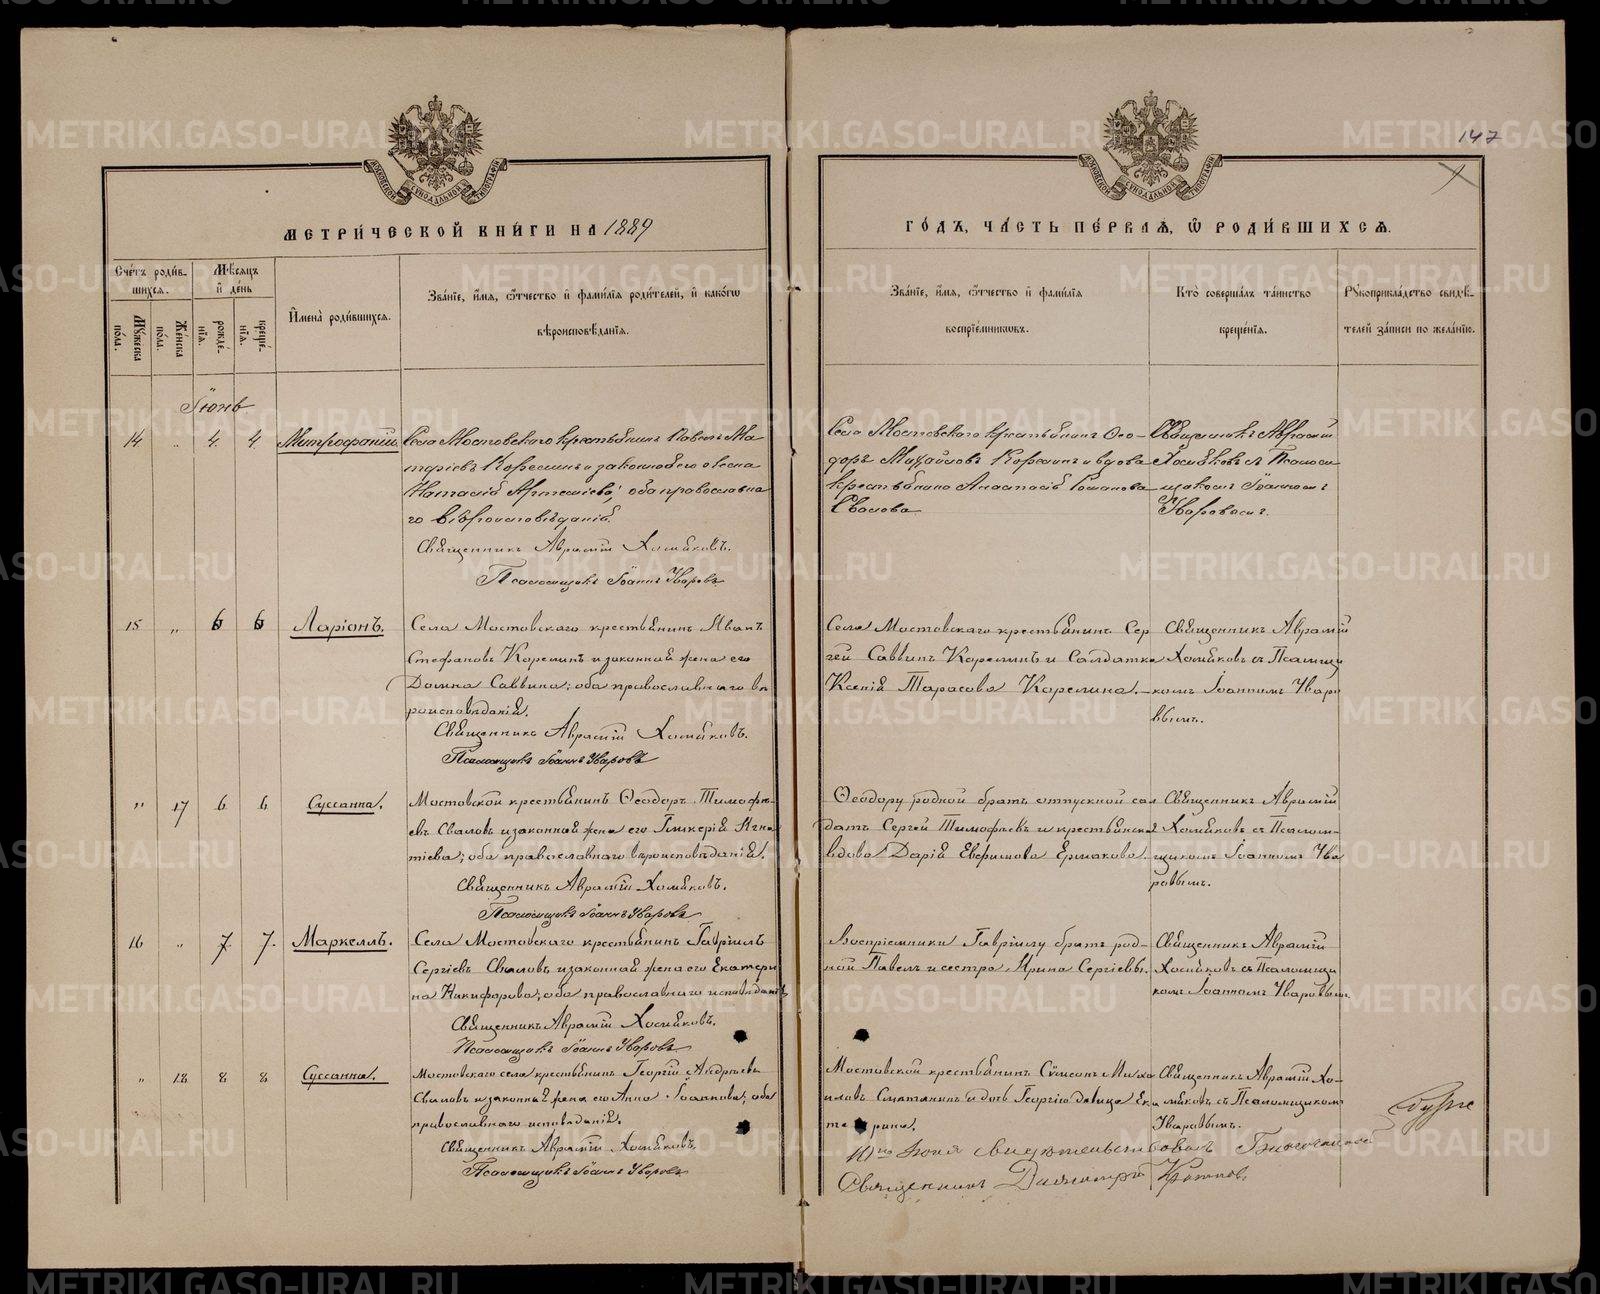 147
МЕТРИ́ЧЕСКОЙ КНИ́ГИ НА 1889
ГО́ДЪ, ЧА́СТЬ ПЕ́РВАѦ, Ѡ҆ РОДИ́ВШИХСѦ.
Сче́тъ роди́в-
шихсѧ.
Мꙋ́жеска по́ла.
Же́нска по́ла.
Мѣ́сѧцъ
и҆ де́нь
рожде́-
нїѧ.
креще́-
нїѧ.
И҆мена̀ роди́вшихсѧ.
Зва́нїе, и҆́мѧ, ѻ҆́тчество и҆ фами́лїѧ роди́телей, и҆ како́гѡ
вѣроисповѣ́данїѧ.
Зва́нїе, и҆́мѧ, ѻ҆́тчество и҆ фами́лїѧ
воспрїе́мниковъ.
Кто̀ соверша́лъ та́инство
креще́нїѧ.
Рꙋкоприкла́дство свидѣ́-
телей за́писи по жела́нїю.
Іюнь
14 " 4 4 Митрофаній.
Села Мостовскаго крестьянинъ Павелъ Ма-
тфіевъ Корелинъ и законная его жена
Наталія Артеміева; оба православна-
го вѣроисповѣданія.
Священникъ Аврамій Хомяковъ.
Псаломщикъ Іоаннъ Уваровъ
Села Мостовскаго крестьянинъ Ѳео-
доръ Михайловъ Корелинъ и вдова
крестьянина Анастасія Романова
Свалова
Священникъ Аврамій
Хомяковъ съ Псалом-
щикомъ Іоанномъ
Уваровымъ.
15 " 6 6 Ларіонъ.
Села Мостовскаго крестьянинъ Иванъ
Стефановъ Карелинъ и законная жена его
Домна Саввина; оба православнаго вѣ
роисповѣданія.
Священникъ Аврамій Хомяковъ.
Псаломщикъ Іоаннъ Уваровъ
Села Мостовскаго крестьянинъ Сер
гей Саввинъ Карелинъ и Солдатка
Ксенія Тарасова Карелина.
Священникъ Аврамій
Хомяковъ съ Псаломщи
комъ Іоанномъ Уваро
вымъ.
" 17 6 6 Суссанна.
Мостовской крестьянинъ Ѳеодоръ Тимофе-
евъ Сваловъ и законная жена его Гликерія Игна
тіева; оба православнаго вѣроисповѣданія.
Священникъ Аврамій Хомяковъ.
Псаломщикъ Іоаннъ Уваровъ
Ѳеодору родной братъ отпускной сол
датъ Сергей Тимофѣевъ и крестьянская
вдова Дарія Евфимова Ермакова.
Священникъ Аврамій
Хомяковъ съ Псалом-
щикомъ Іоанномъ Ува
ровымъ.
16 " 7 7. Маркеллъ.
Села Мостовскаго крестьянинъ Гавріилъ
Сергіевъ Сваловъ, и законная жена его Екатери
на Никифорова; оба православнаго исповѣданія
Священникъ Аврамій Хомяковъ.
Псаломщикъ Іоаннъ Уваровъ
Воспріемники Гавріилу братъ род-
ной Павелъ и сестра Ирина Сергіевы.
Священникъ Аврамій
Хомяковъ съ Псаломщи
комъ Іоанномъ Уваровымъ.
" 18 8 8 Суссанна.
Мостовскаго села крестьянинъ Георгій Андреевъ
Сваловъ и законная жена его Анна Іоаннова; оба
православнаго исповѣданія.
Священникъ Аврамій Хомяковъ.
Псаломщикъ Іоаннъ Уваровъ
Мостовской крестьянинъ Симеонъ Миха
иловъ Сметанинъ и дочь Георгію девица Ека
терина.
Священникъ Аврамій Хо-
мяковъ съ Псаломщикомъ
Уваровымъ.
10го Іюня свидетельствовалъ Благочинной
Священникъ Димитрій
METRIKI.GASO-URAL.RU